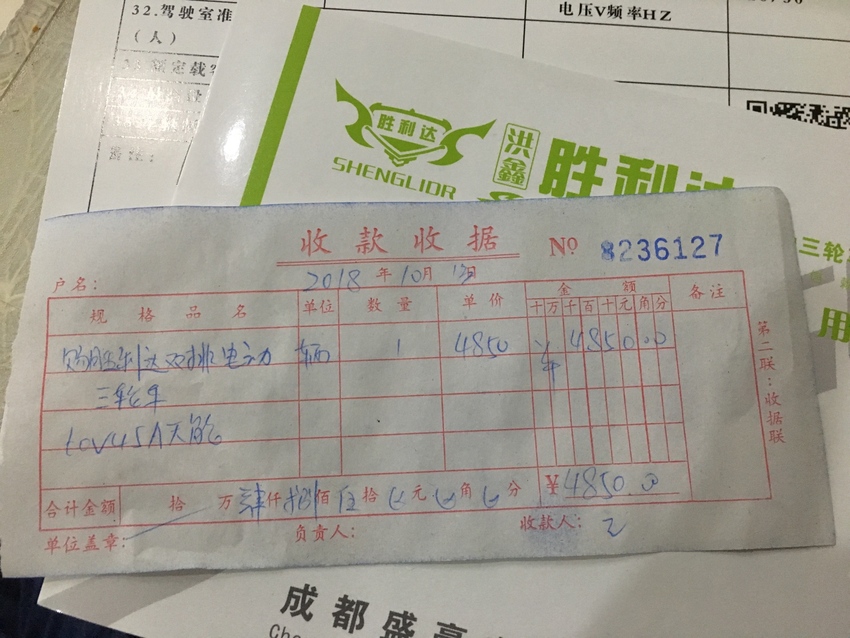 32.驾驶室准
(人)
电压V频率HZ
胜利达
SHENGLIOR
洪鑫
胜利达
三轮
用
收款收据
№ 8236127
户名:
2018年10月 日
规格品名 单位 数量 单价 金额 备注
十万千百十元角分
购胜利达双排电动 辆 1 4850 ¥4850.00
三轮车
60V45A天能
合计金额 拾 万肆仟捌佰伍拾0元0角0分 ¥4850.00
单位盖章: 负责人: 收款人:
第二联:收据联
成都盛